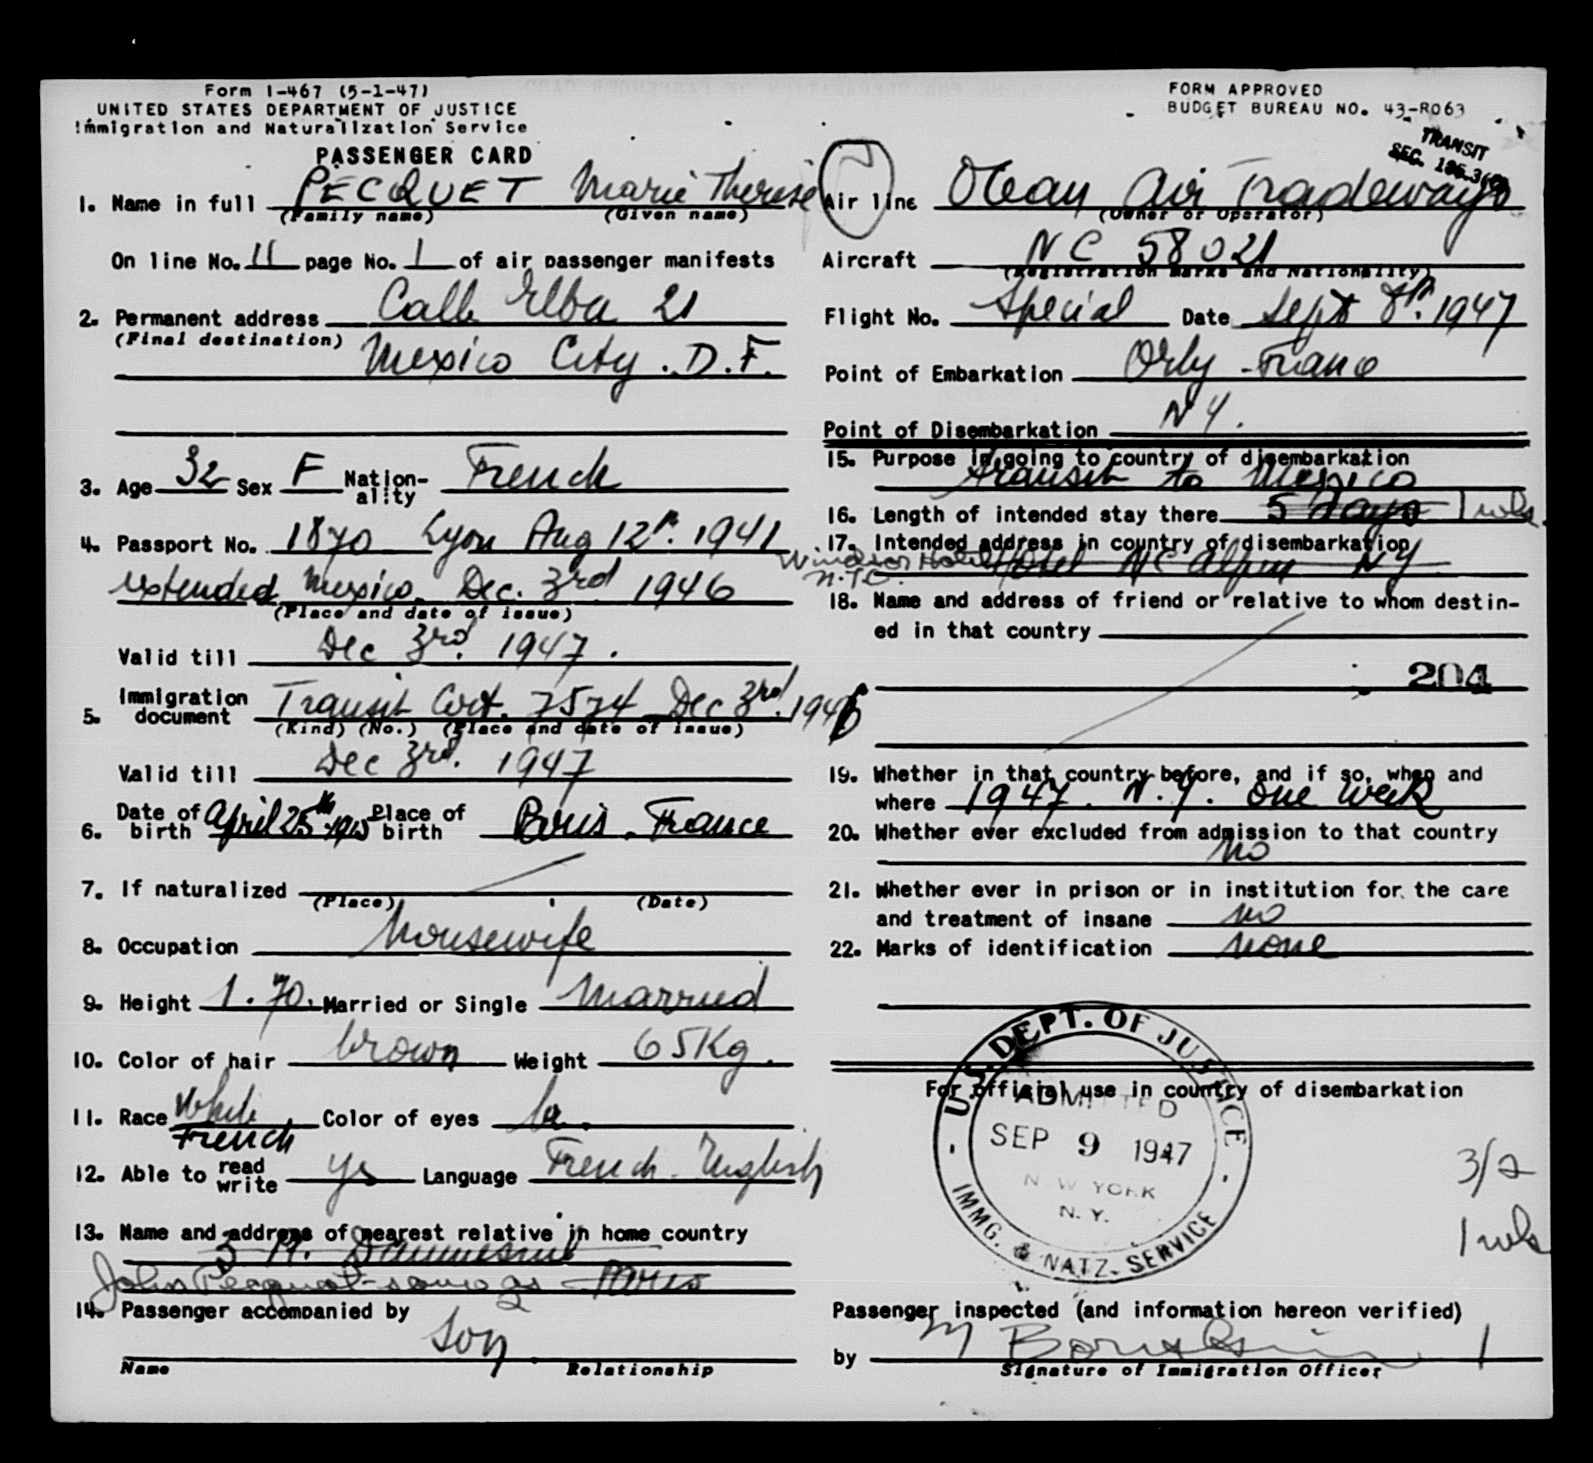 Form I-467 (5-1-47)
UNITED STATES DEPARTMENT OF JUSTICE
Immigration and Naturalization Service
PASSENGER CARD
FORM APPROVED
BUDGET BUREAU NO. 43-R063
TRANSIT
SEC.
1. Name in full PECQUET Marie Therese
(Family name) (Given name)
On line No. 11 page No. 1 of air passenger manifests
2. Permanent address Calle Elba 21
(Final destination) Mexico City. D.F.
3. Age 32 Sex F Nationality French
4. Passport No. 1870 Lyon Aug 12th. 1941
extended Mexico. Dec. 3rd 1946
(Place and date of issue)
Valid till Dec 3rd. 1947.
5. Immigration document Transit Cert. 7574 Dec 3rd. 1946
(Kind) (No.) (Place and date of issue)
Valid till Dec 3rd. 1947
6. Date of birth April 25th 1915 Place of birth Paris. France
7. If naturalized
(Place) (Date)
8. Occupation housewife
9. Height 1.70. Married or Single Married
10. Color of hair brown Weight 65Kg.
11. Race White Color of eyes
French
12. Able to read write yes Language French. English
13. Name and address of nearest relative in home country
John Pecquet - same as Paris
14. Passenger accompanied by
Son
Name Relationship
Air line Ocean Air Tradeways
(Owner or Operator)
Aircraft NC 58021
(Registration Marks and Nationality)
Flight No. Special Date Sept 8th. 1947
Point of Embarkation Orly - France
Point of Disembarkation N Y.
15. Purpose in going to country of disembarkation
transit to Mexico
16. Length of intended stay there 5 days 1 wk.
17. Intended address in country of disembarkation
Windsor Hotel Hotel Mc Alpin NY
N.Y.C.
18. Name and address of friend or relative to whom destin-
ed in that country
204
19. Whether in that country before, and if so, when and
where 1947. N.Y. one week
20. Whether ever excluded from admission to that country
no
21. Whether ever in prison or in institution for the care
and treatment of insane no
22. Marks of identification none
For official use in country of disembarkation
U.S. DEPT. OF JUSTICE
ADMITTED
SEP 9 1947
NEW YORK
N.Y.
IMMG. & NATZ. SERVICE
3/2
1 wk
Passenger inspected (and information hereon verified)
by M
Signature of Immigration Officer